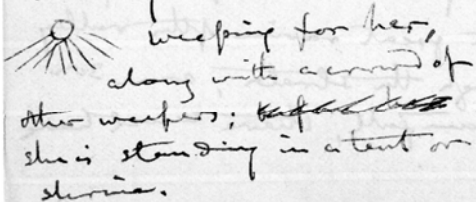 weeping for her,
along with a crowd of
other weepers;
she is standing in a tent or
shrine.